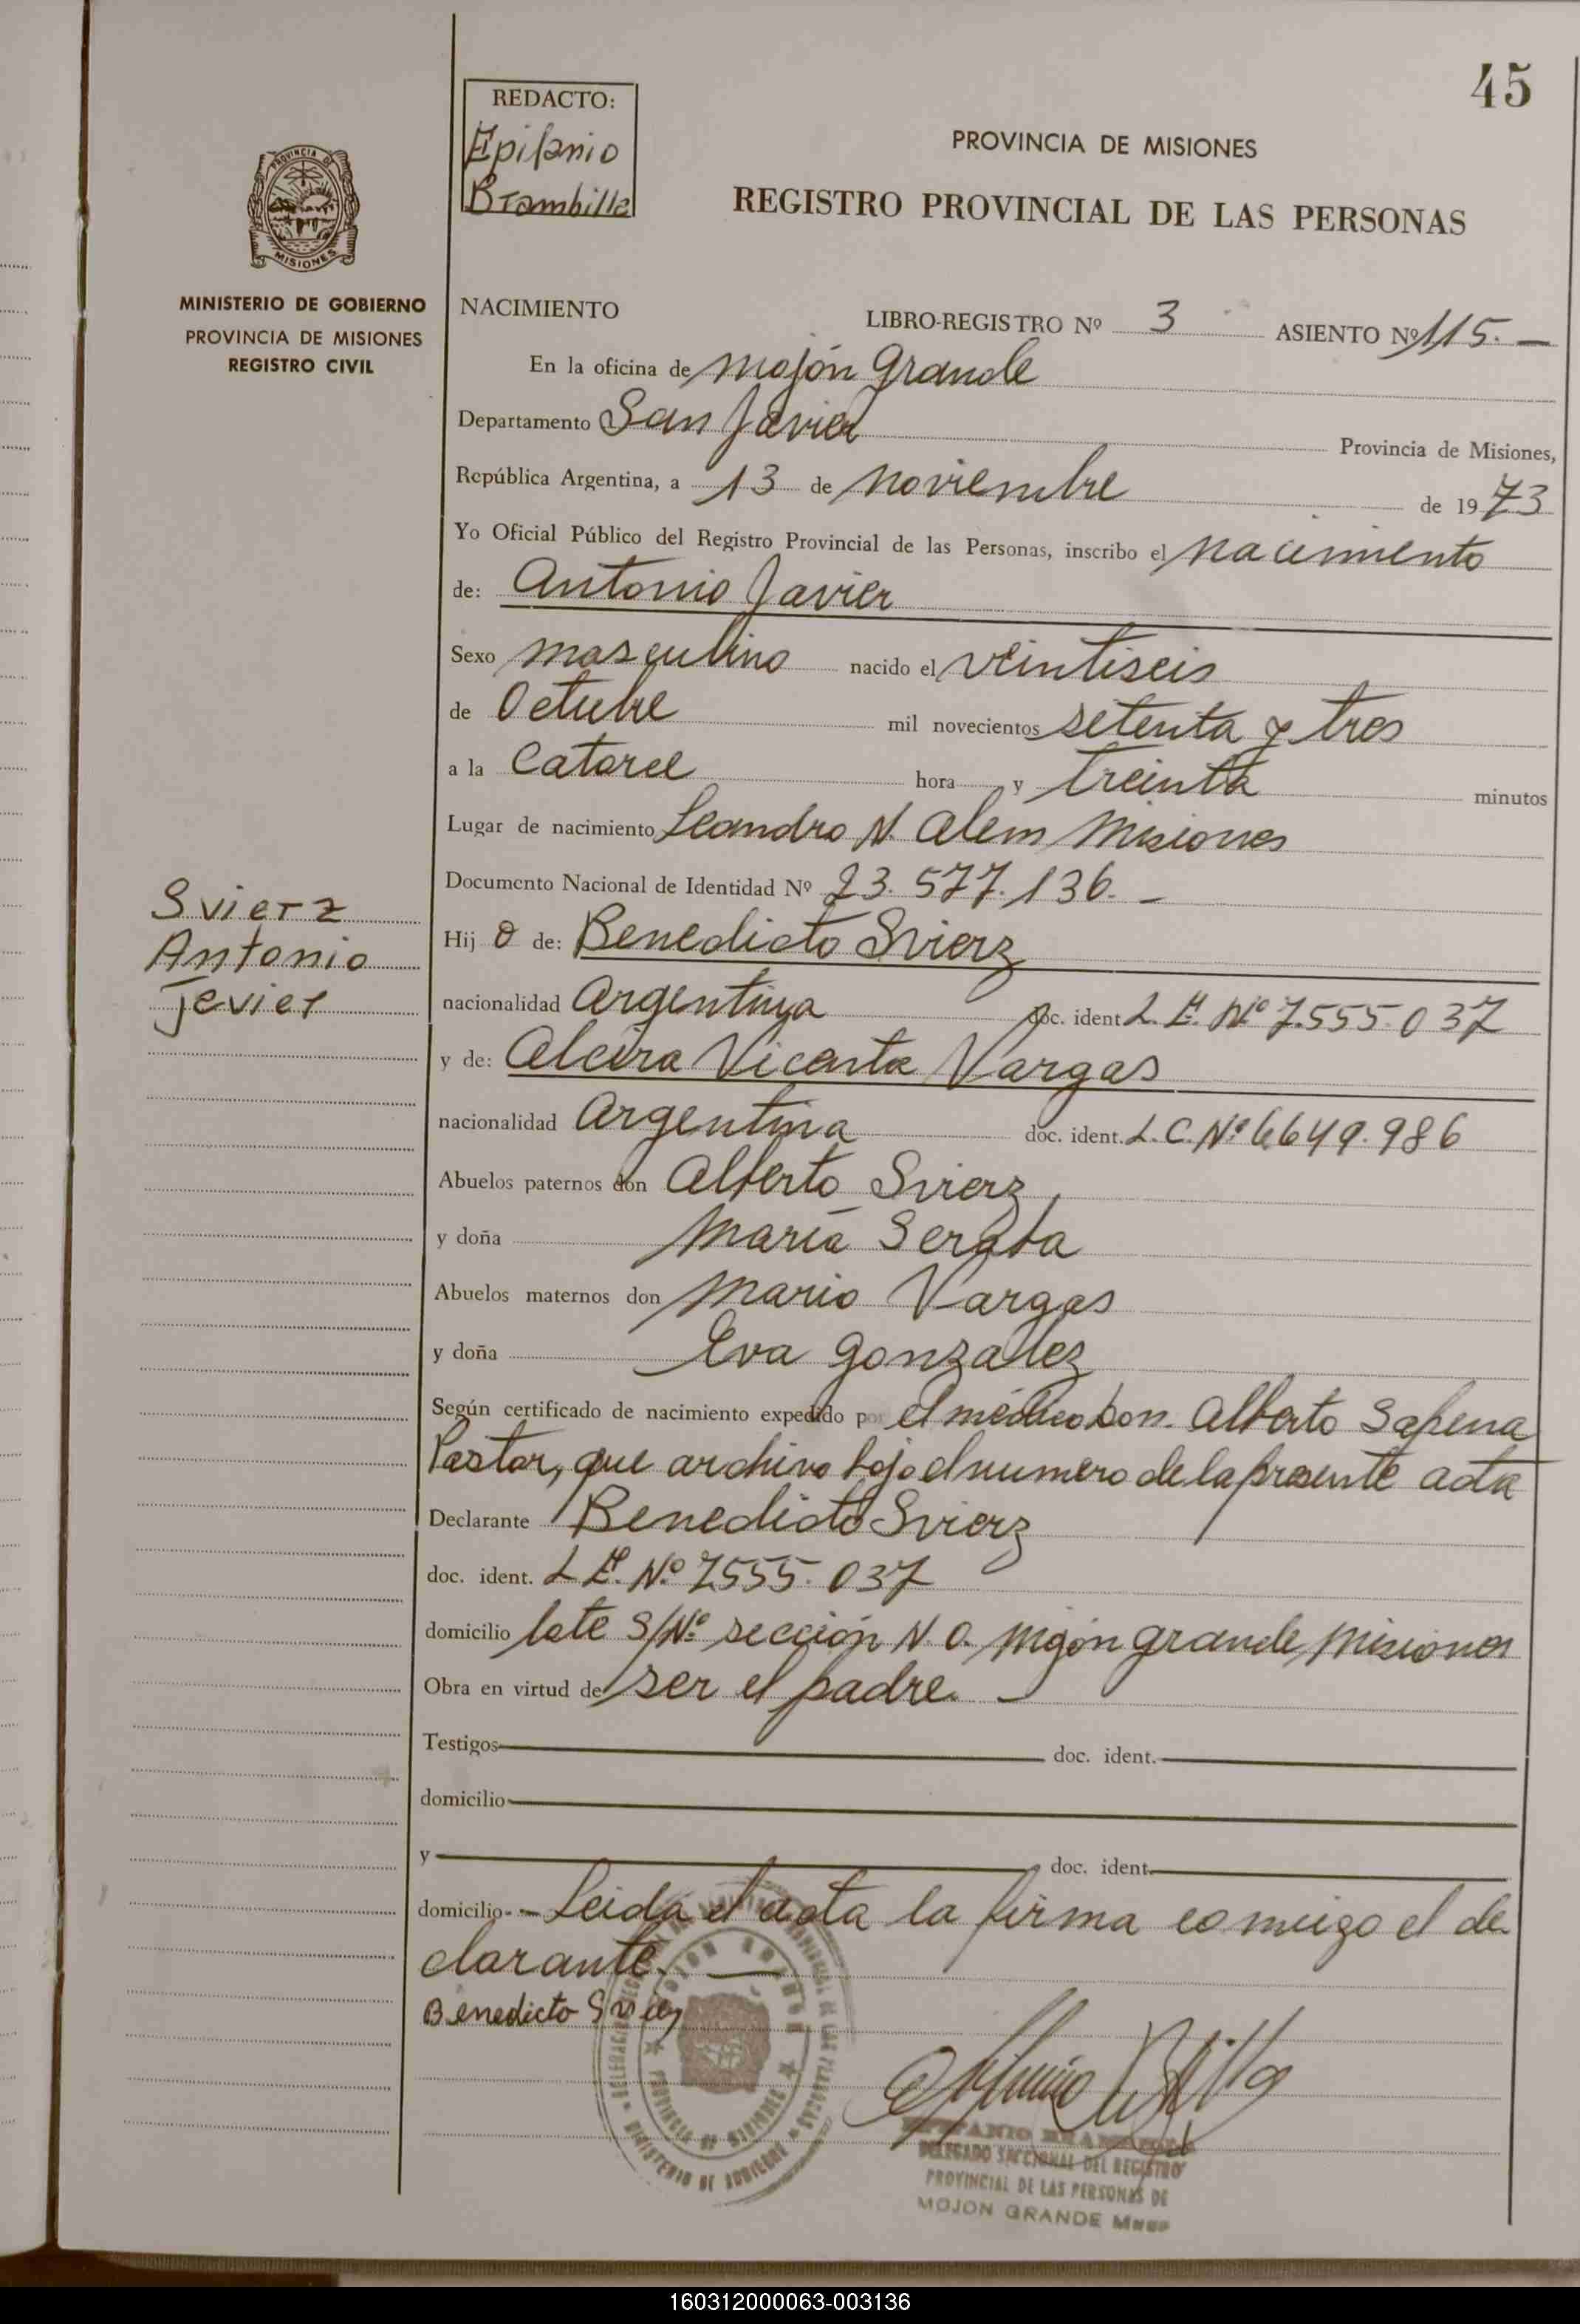 45
REDACTO:
Epifanio
Brambilla
PROVINCIA DE MISIONES
REGISTRO PROVINCIAL DE LAS PERSONAS
PROVINCIA DE
MISIONES
MINISTERIO DE GOBIERNO
PROVINCIA DE MISIONES
REGISTRO CIVIL
NACIMIENTO
LIBRO-REGISTRO Nº 3 ASIENTO Nº 115. —
En la oficina de Mojón Grande
Departamento San Javier Provincia de Misiones,
República Argentina, a 13 de Noviembre de 1973
Yo Oficial Público del Registro Provincial de las Personas, inscribo el Nacimiento
de: Antonio Javier
Sexo masculino nacido el veintiseis
de Octubre mil novecientos setenta y tres
a la Catorce hora y treinta minutos
Lugar de nacimiento Leandro N. Alem Misiones
Documento Nacional de Identidad Nº 23.577.136. —
Svierz
Antonio
Javier
Hij o de: Benedicto Svierz
nacionalidad Argentina doc. ident. L. E. Nº 7.555.037
y de: Alcira Vicenta Vargas
nacionalidad Argentina doc. ident. L.C. Nº 6.649.986
Abuelos paternos don Alberto Svierz
y doña María Serafa
Abuelos maternos don Mario Vargas
y doña Eva Gonzalez
Según certificado de nacimiento expedido por el médico Don. Alberto Sapena
Pastor, que archivo bajo el numero de la presente acta
Declarante Benedicto Svierz
doc. ident. L.E. Nº 7555.037
domicilio lote S/Nº sección N.O. Mojón Grande, Misiones
Obra en virtud de ser el padre. —
Testigos doc. ident.
domicilio
y doc. ident.
domicilio - Leida el acta la firma conmigo el de-
clarante. —
Benedicto Svierz
DELEGADO SECCIONAL DEL REGISTRO
PROVINCIAL DE LAS PERSONAS DE
MOJON GRANDE Mnes
PROVINCIA DE MISIONES
MINISTERIO DE GOBIERNO
160312000063-003136